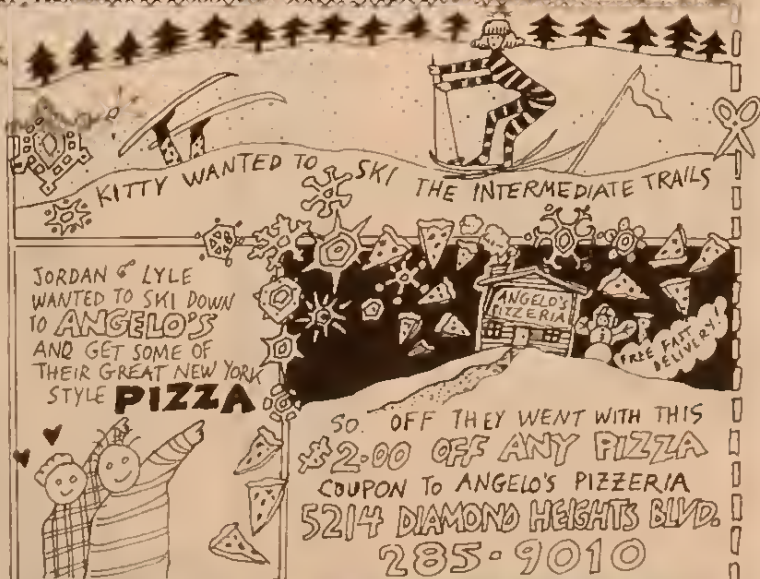 KITTY WANTED TO SKI THE INTERMEDIATE TRAILS
JORDAN & LYLE
WANTED TO SKI DOWN
TO ANGELO'S
AND GET SOME OF
THEIR GREAT NEW YORK
STYLE PIZZA
ANGELO'S
PIZZERIA
FREE FAST
DELIVERY!
SO OFF THEY WENT WITH THIS
$2.00 OFF ANY PIZZA
COUPON TO ANGELO'S PIZZERIA
5214 DIAMOND HEIGHTS BLVD.
285-9010